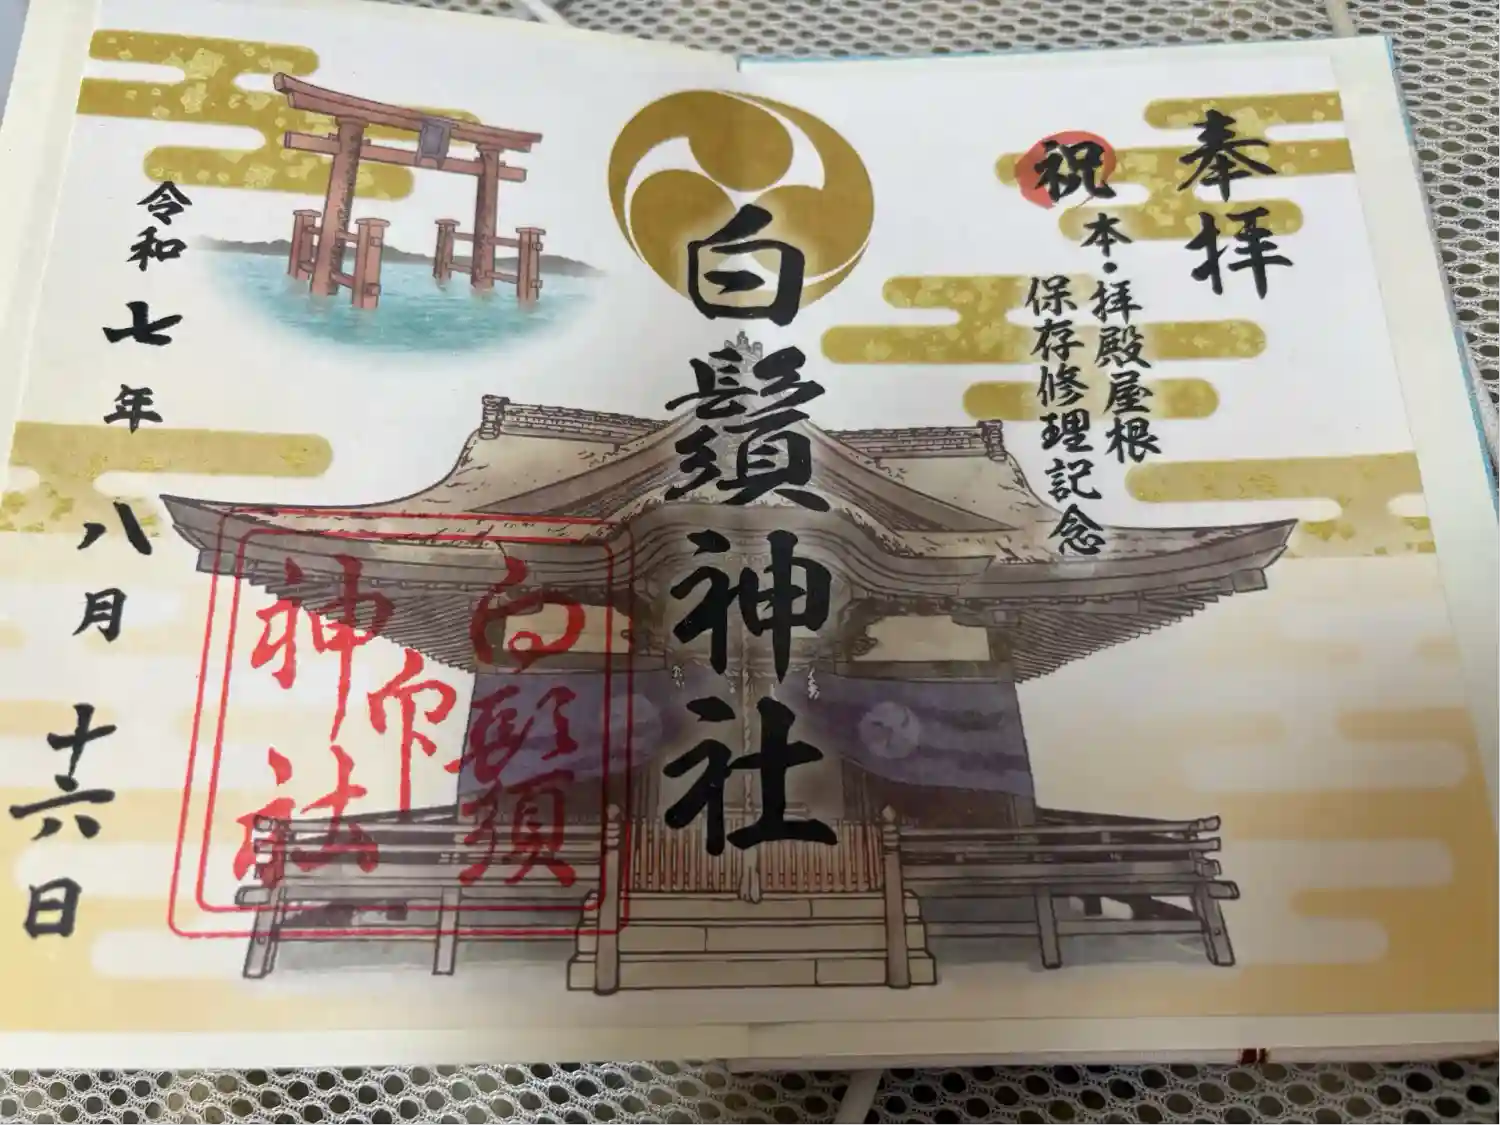 奉拝
祝
本・拝殿屋根
保存修理記念
白鬚神社
白鬚
神社
印
令和七年八月十六日